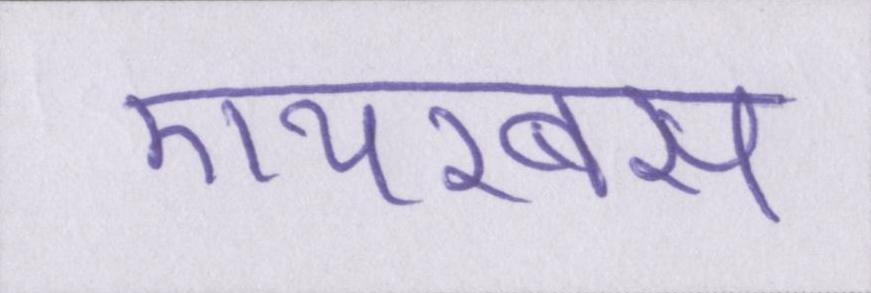 एयरबस